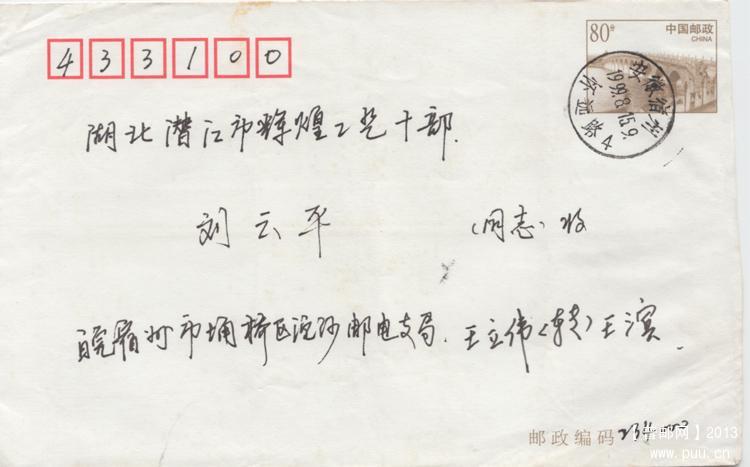 433100
80分 中国邮政
CHINA
安徽宿州
1999.8.15.9
湖北潜江市辉煌工艺干部.
刘云平 (同志)收
皖宿州市埇桥区沱沙邮电支局. 王立伟(转)王滨.
邮政编码 234
【普邮网】2013
www.puu.cn